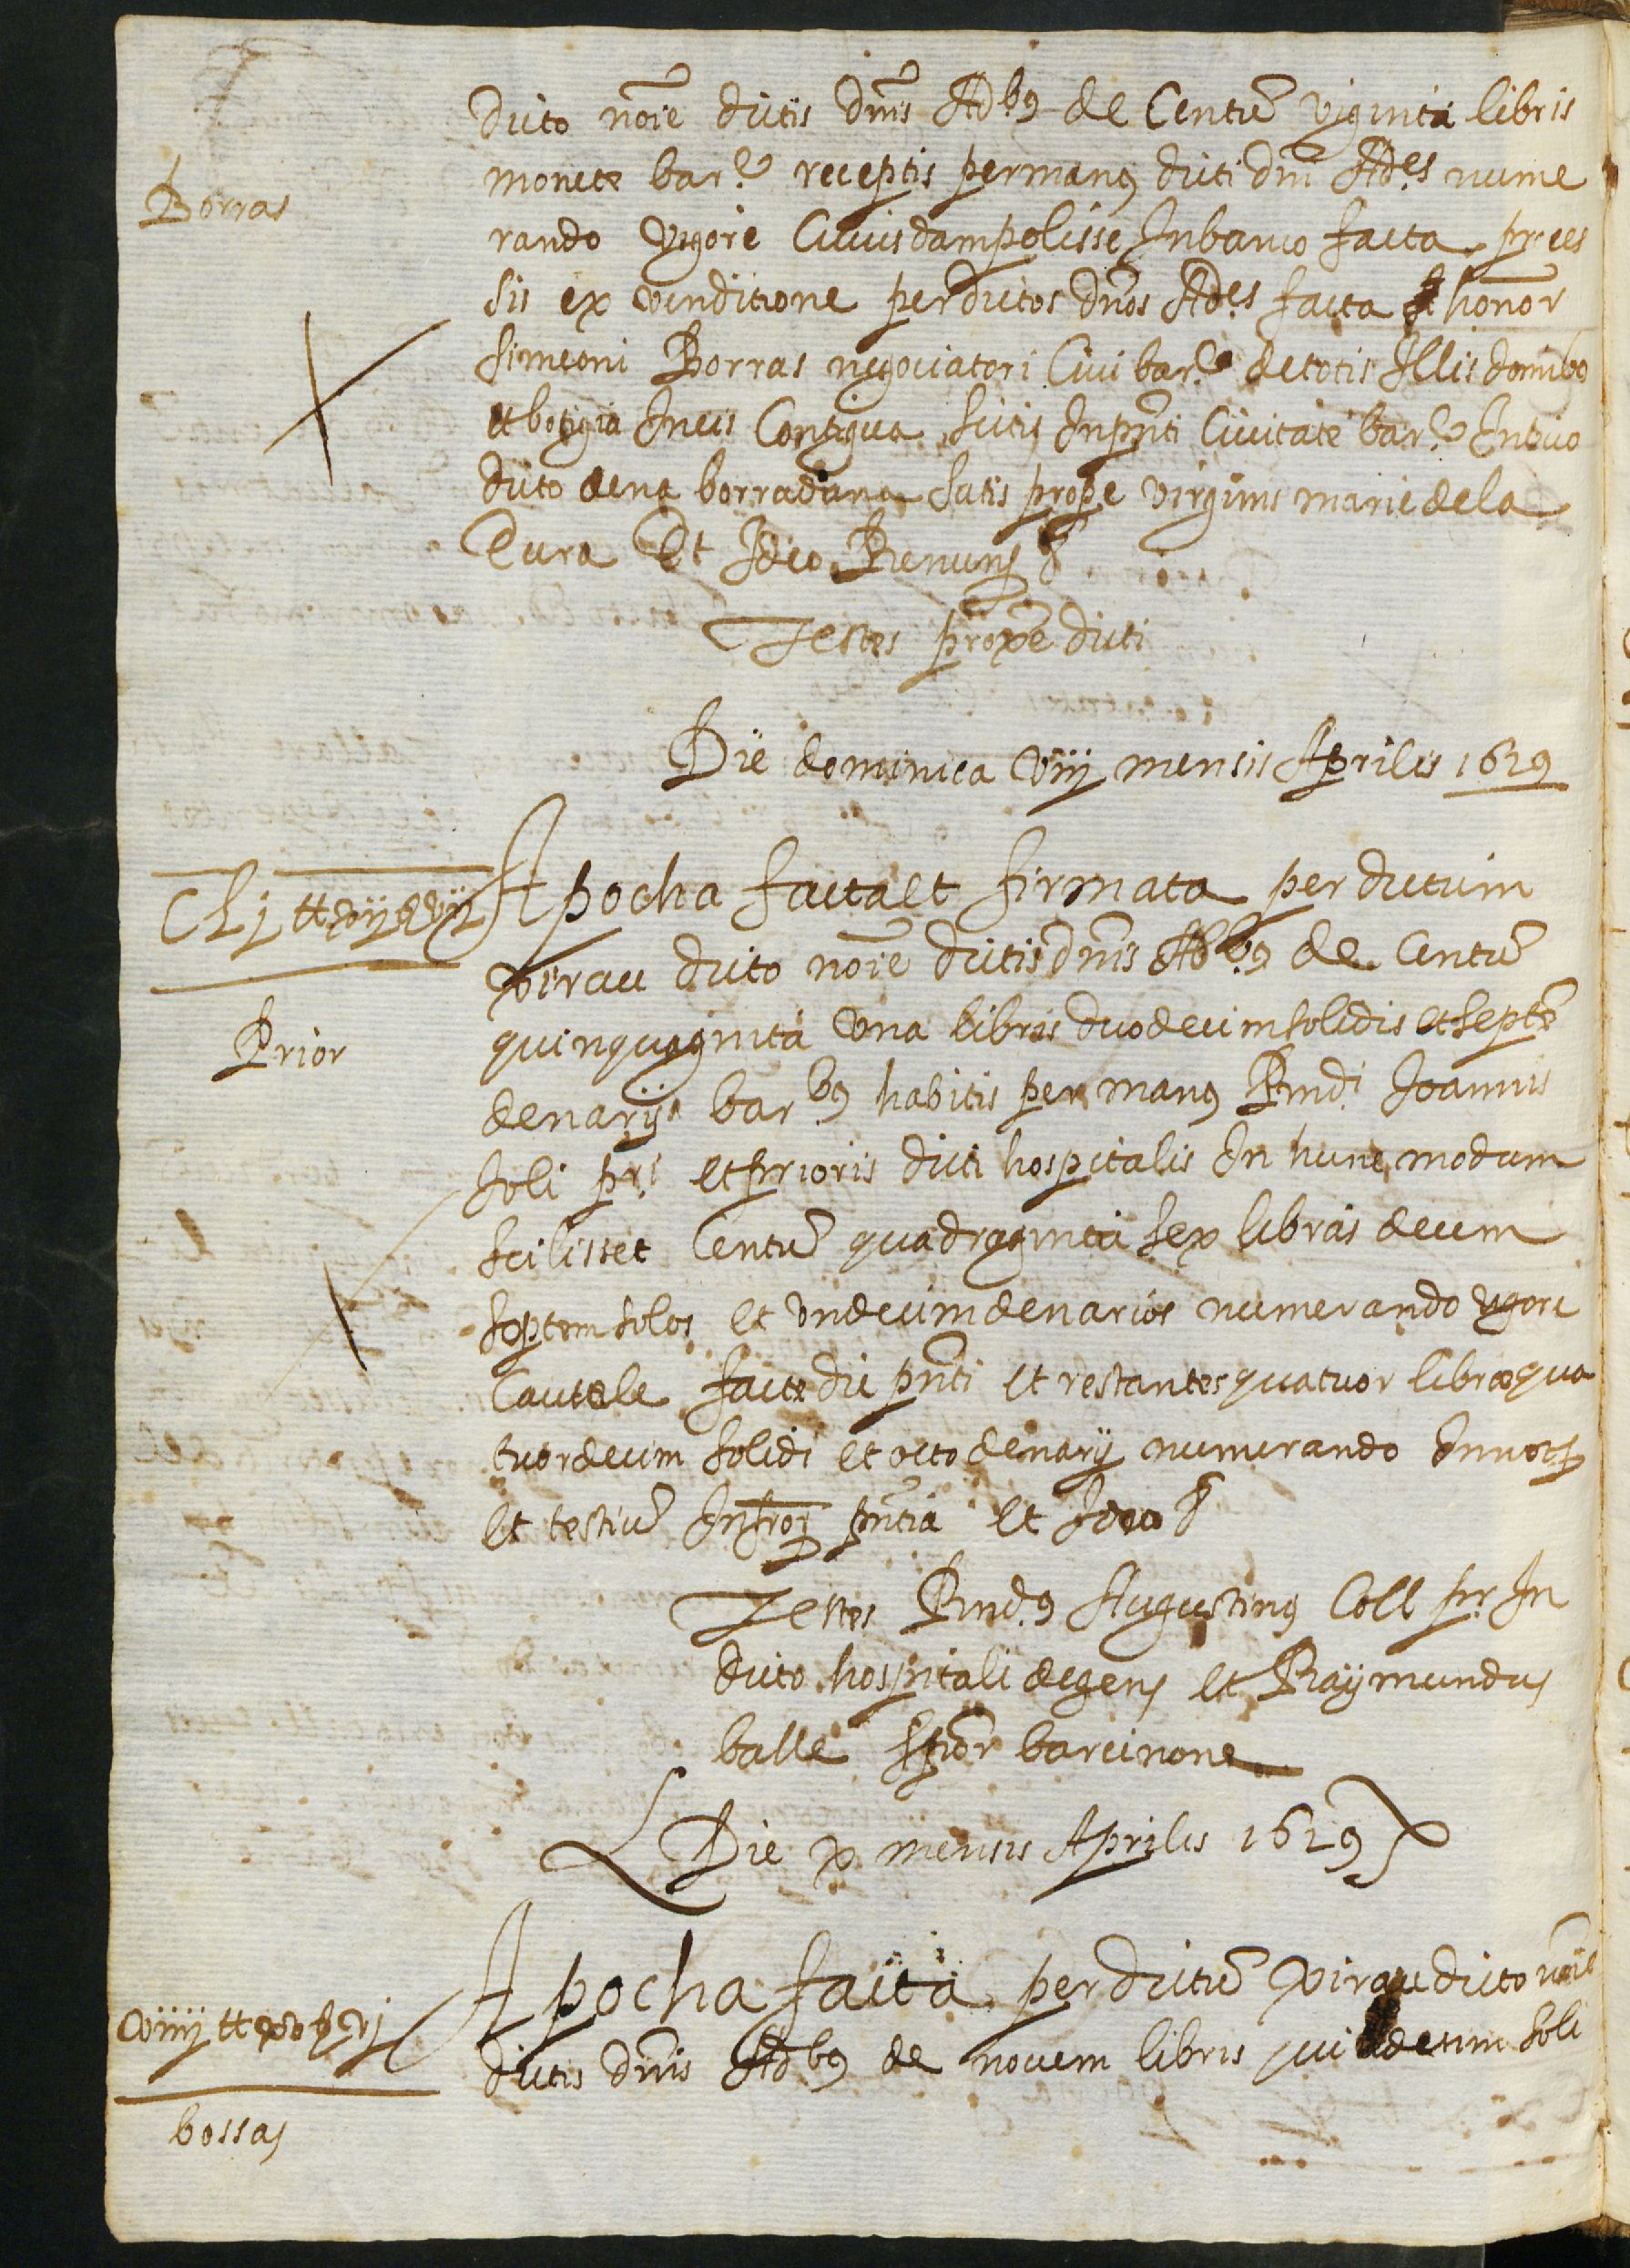 dicto noīe dictis dnīs Adbꝯ de Centū viginta libris
Borras
monete bar.e receptis per manꝯ dicti dnī Ades nume
rando vigore Cuiusdam polisse In banco facta proces
sis ex venditione per dictos dnōs Ades facta honor
Simeoni Borras negociatori Ciui bar.e de totis Illis domibꝯ
et botigia In eis Contigua sitis In pnti Ciuitate bar.e In vico
dicto dena borradana satis prope virginis marie de la
Cura Et Ideo Renunꝯ
Testes proxe dicti
Die dominica viij mensis Aprilis 1629
Clj tt xij s vij
Apocha facta et firmata per dictum
Xirau dicto noīe dictis dnīs Adbꝯ de Centū
Prior
quinquaginta una libris duodecim solidis et septē
denarijs bar bꝯ habitis per manꝯ Rndi Joannis
Soli pri et prioris dicti hospitalis In hunc modum
scilisset Centū quadraginta sex libras decem
septem solos et undecim denarios numerando vigore
Cautele facte die pnti et restantes quatuor libre qua
tuordecim solidi et octo denarij numerando In
et testiū Infror pntia et Ideo
Testes Rnd.ꝯ Augustinꝯ Coll pr. In
dicto hospitali degens et Raijmundus
balle Scptor barcinone
Die x mensis Aprilis 1629
Apocha facta per dictū Xirau dicto noīe
viiij tt xv s vj
dictis dnīs Adbꝯ de novem libris quindecim soli
bossas